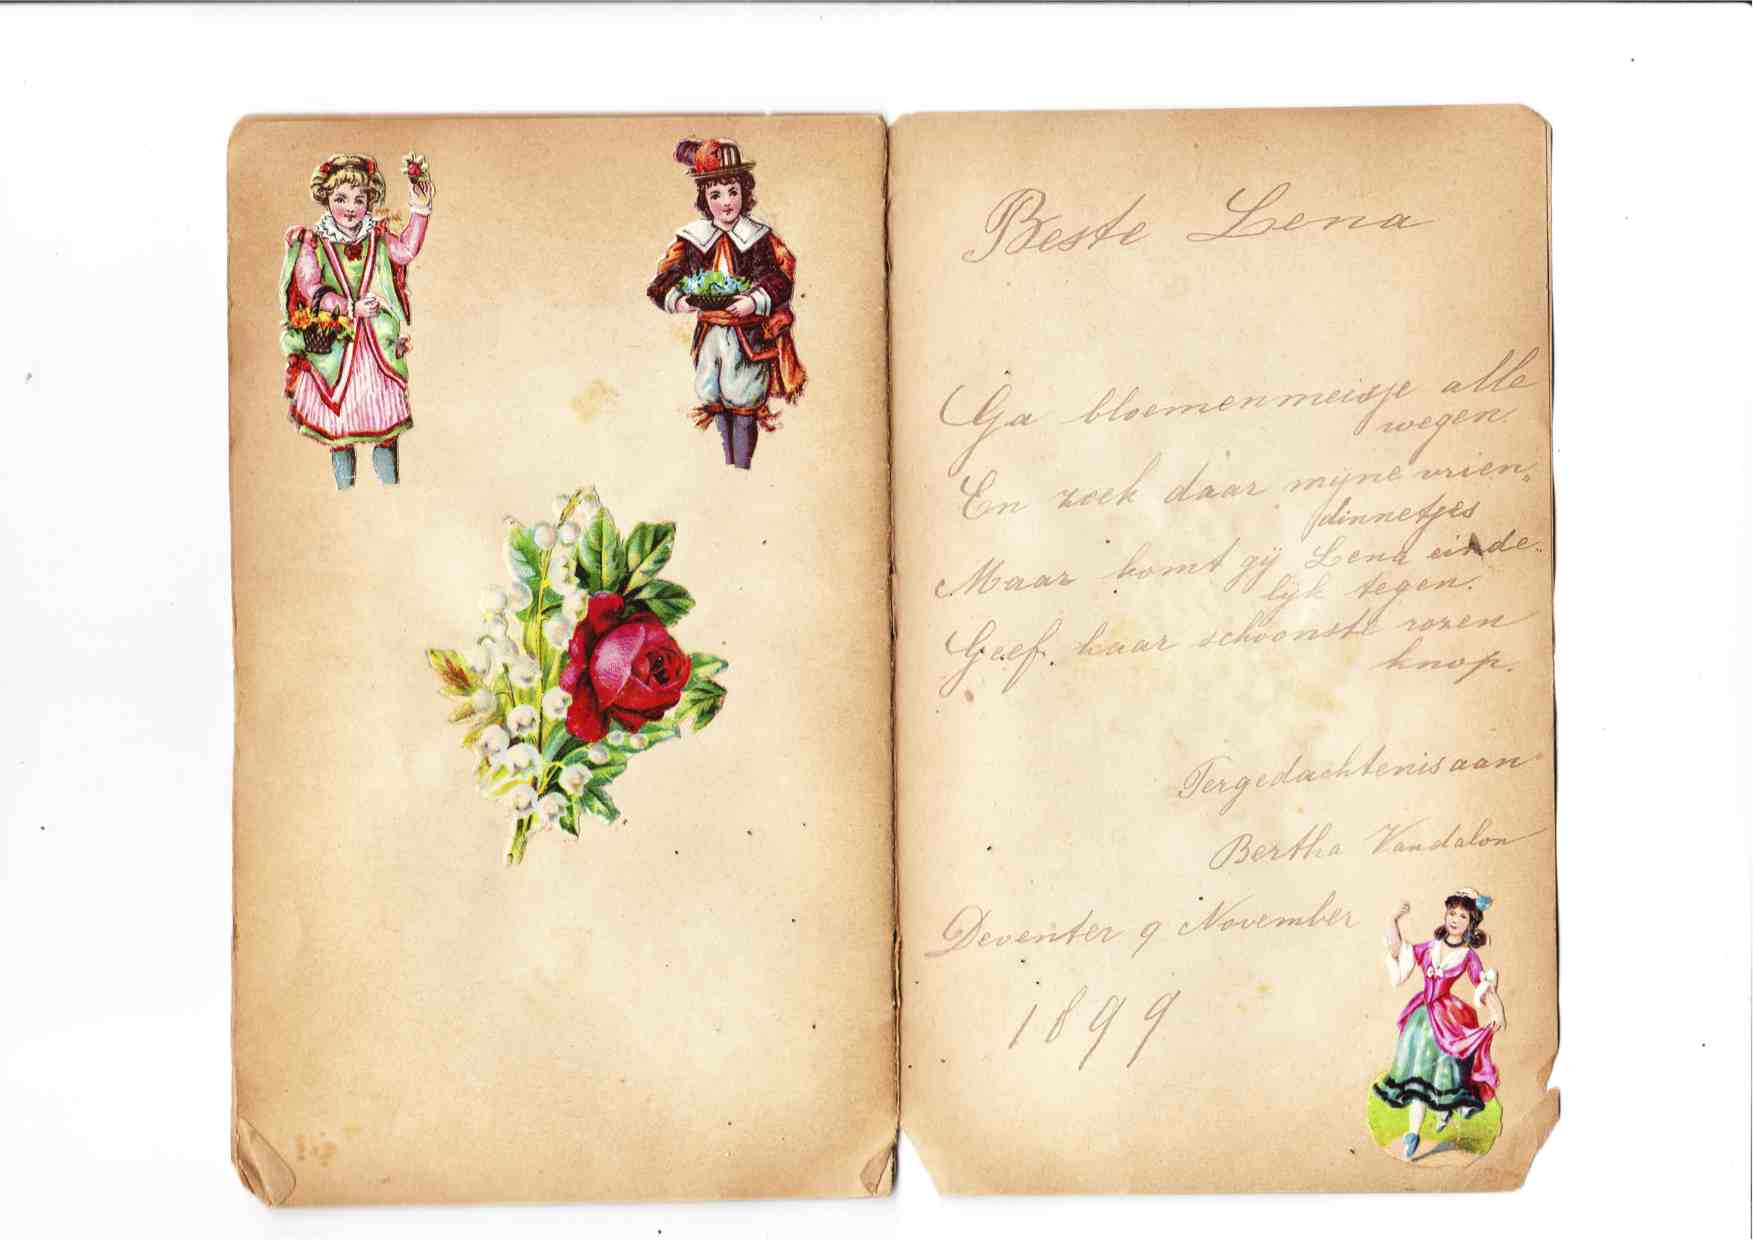 Beste Lena
Ga bloemenmeisje alle
wegen.
En zoek daar mijne vrien„
dinnetjes
Maar komt gij Lena einde„
lijk tegen.
Geef. haar schoonste rozen
knop.
Tergedachtenis aan
Bertha Vandalon
Deventer 9 November
1899